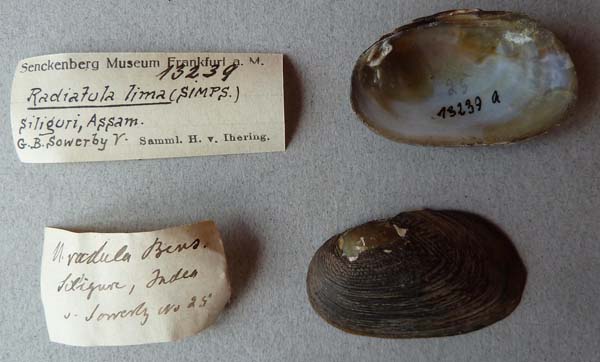 Senckenberg Museum Frankfurt a. M.
13239
Radiatula lima (SIMPS.)
Siliguri, Assam.
G.B. Sowerby V. Samml. H. v. Ihering.
25
13239 a
U. radula Bens.
Siligure, India
v. Sowerby No 25